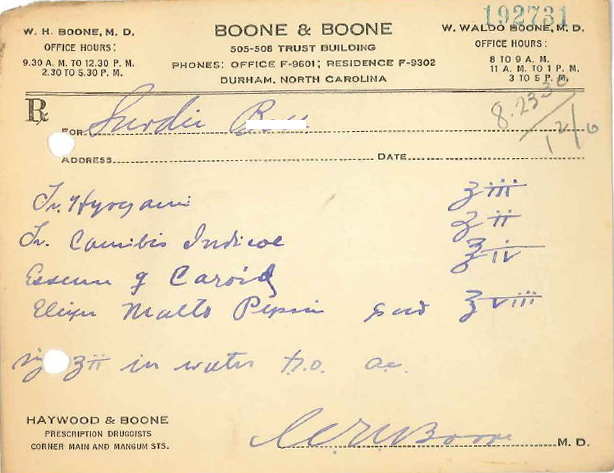 192731
W. H. BOONE, M. D.
OFFICE HOURS:
9.30 A. M. TO 12.30 P. M.
2.30 TO 5.30 P. M.
BOONE & BOONE
505-506 TRUST BUILDING
PHONES: OFFICE F-9601; RESIDENCE F-9302
DURHAM, NORTH CAROLINA
W. WALDO BOONE, M. D.
OFFICE HOURS:
8 TO 9 A. M.
11 A. M. TO 1 P. M.
3 TO 5 P. M.
℞
FOR
8.23.30
ADDRESS DATE
Tr. Hyosyami ʒiii
Tr. Cannibis Indicae ʒii
Essence of Caroid ʒiv
Elixir Malto Pepsin ʒviii
sig ʒii in water a.c.
HAYWOOD & BOONE
PRESCRIPTION DRUGGISTS
CORNER MAIN AND MANGUM STS.
W H Boone M. D.